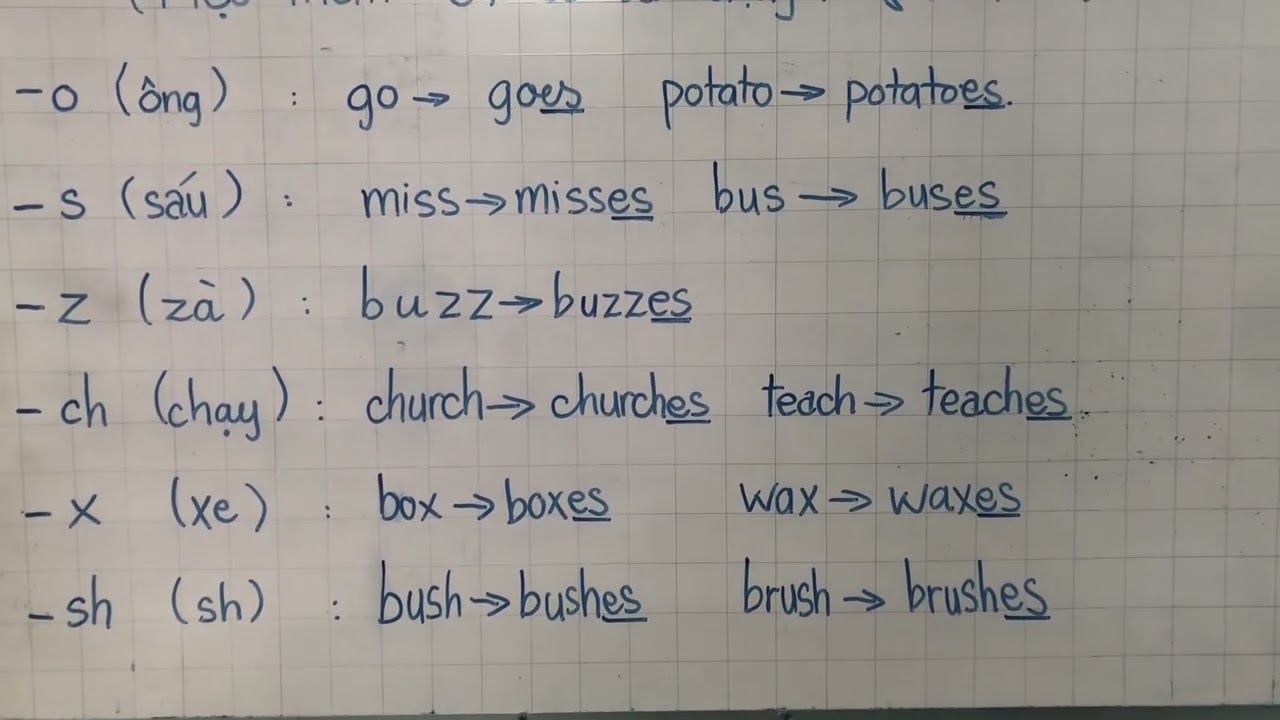 -o (ông) : go → goes potato → potatoes.
- s (sấu) : miss → misses bus → buses
- z (zà) : buzz → buzzes
- ch (chạy) : church → churches teach → teaches.
- x (xe) : box → boxes wax → waxes
- sh (sh) : bush → bushes brush → brushes